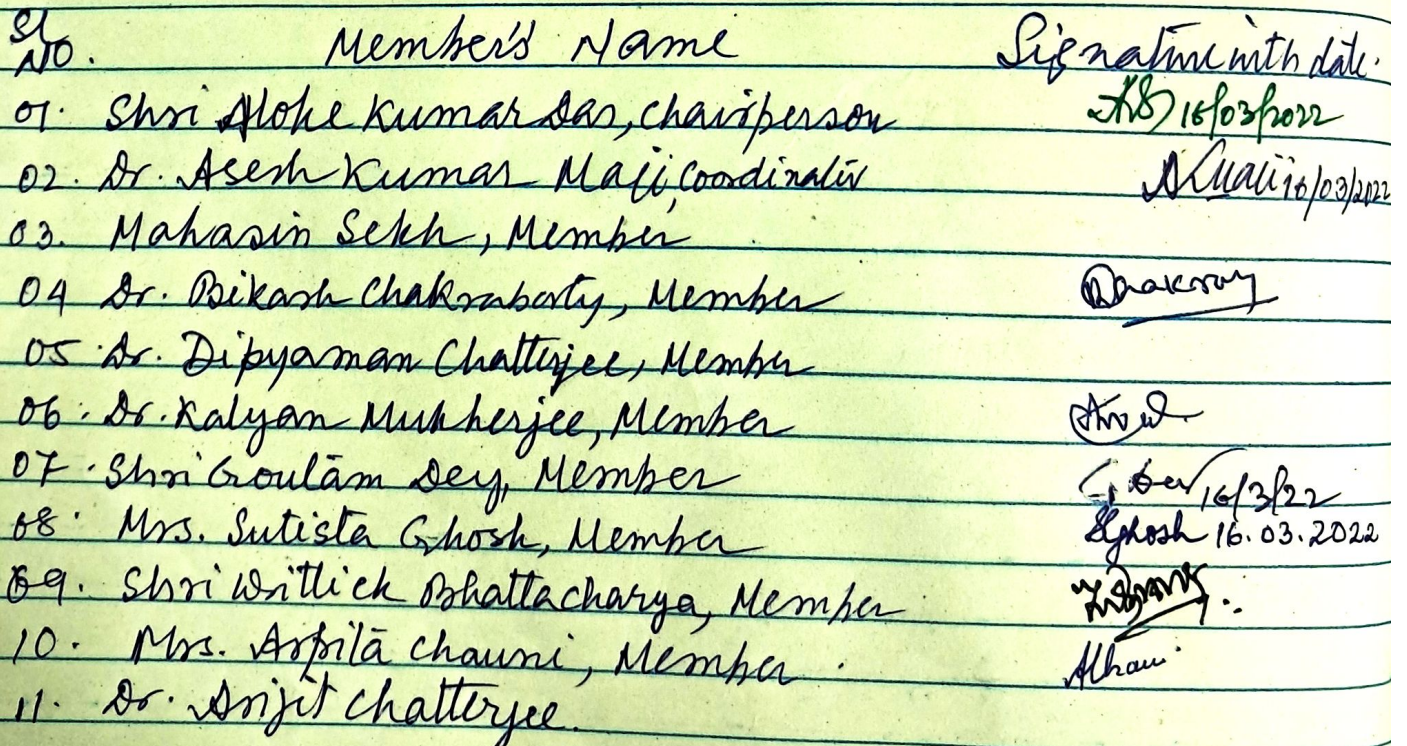 Sl NO. Member's Name Signature with date.
01. Shri Aloke Kumar Das, Chairperson 16/03/2022
02. Dr. Asesh Kumar Maji, Coordinator 16/03/2022
03. Mahasin Sekh, Member
04 Dr. Bikash Chakraborty, Member
05. Dr. Dipyaman Chatterjee, Member
06. Dr. Kalyan Mukherjee, Member
07. Shri Goutam Dey, Member G. Dey 16/3/22
08. Mrs. Sutista Ghosh, Member SGhosh 16.03.2022
09. Shri Writtick Bhattacharya, Member
10. Mrs. Arpita Chauni, Member
11. Dr. Arijit Chatterjee.